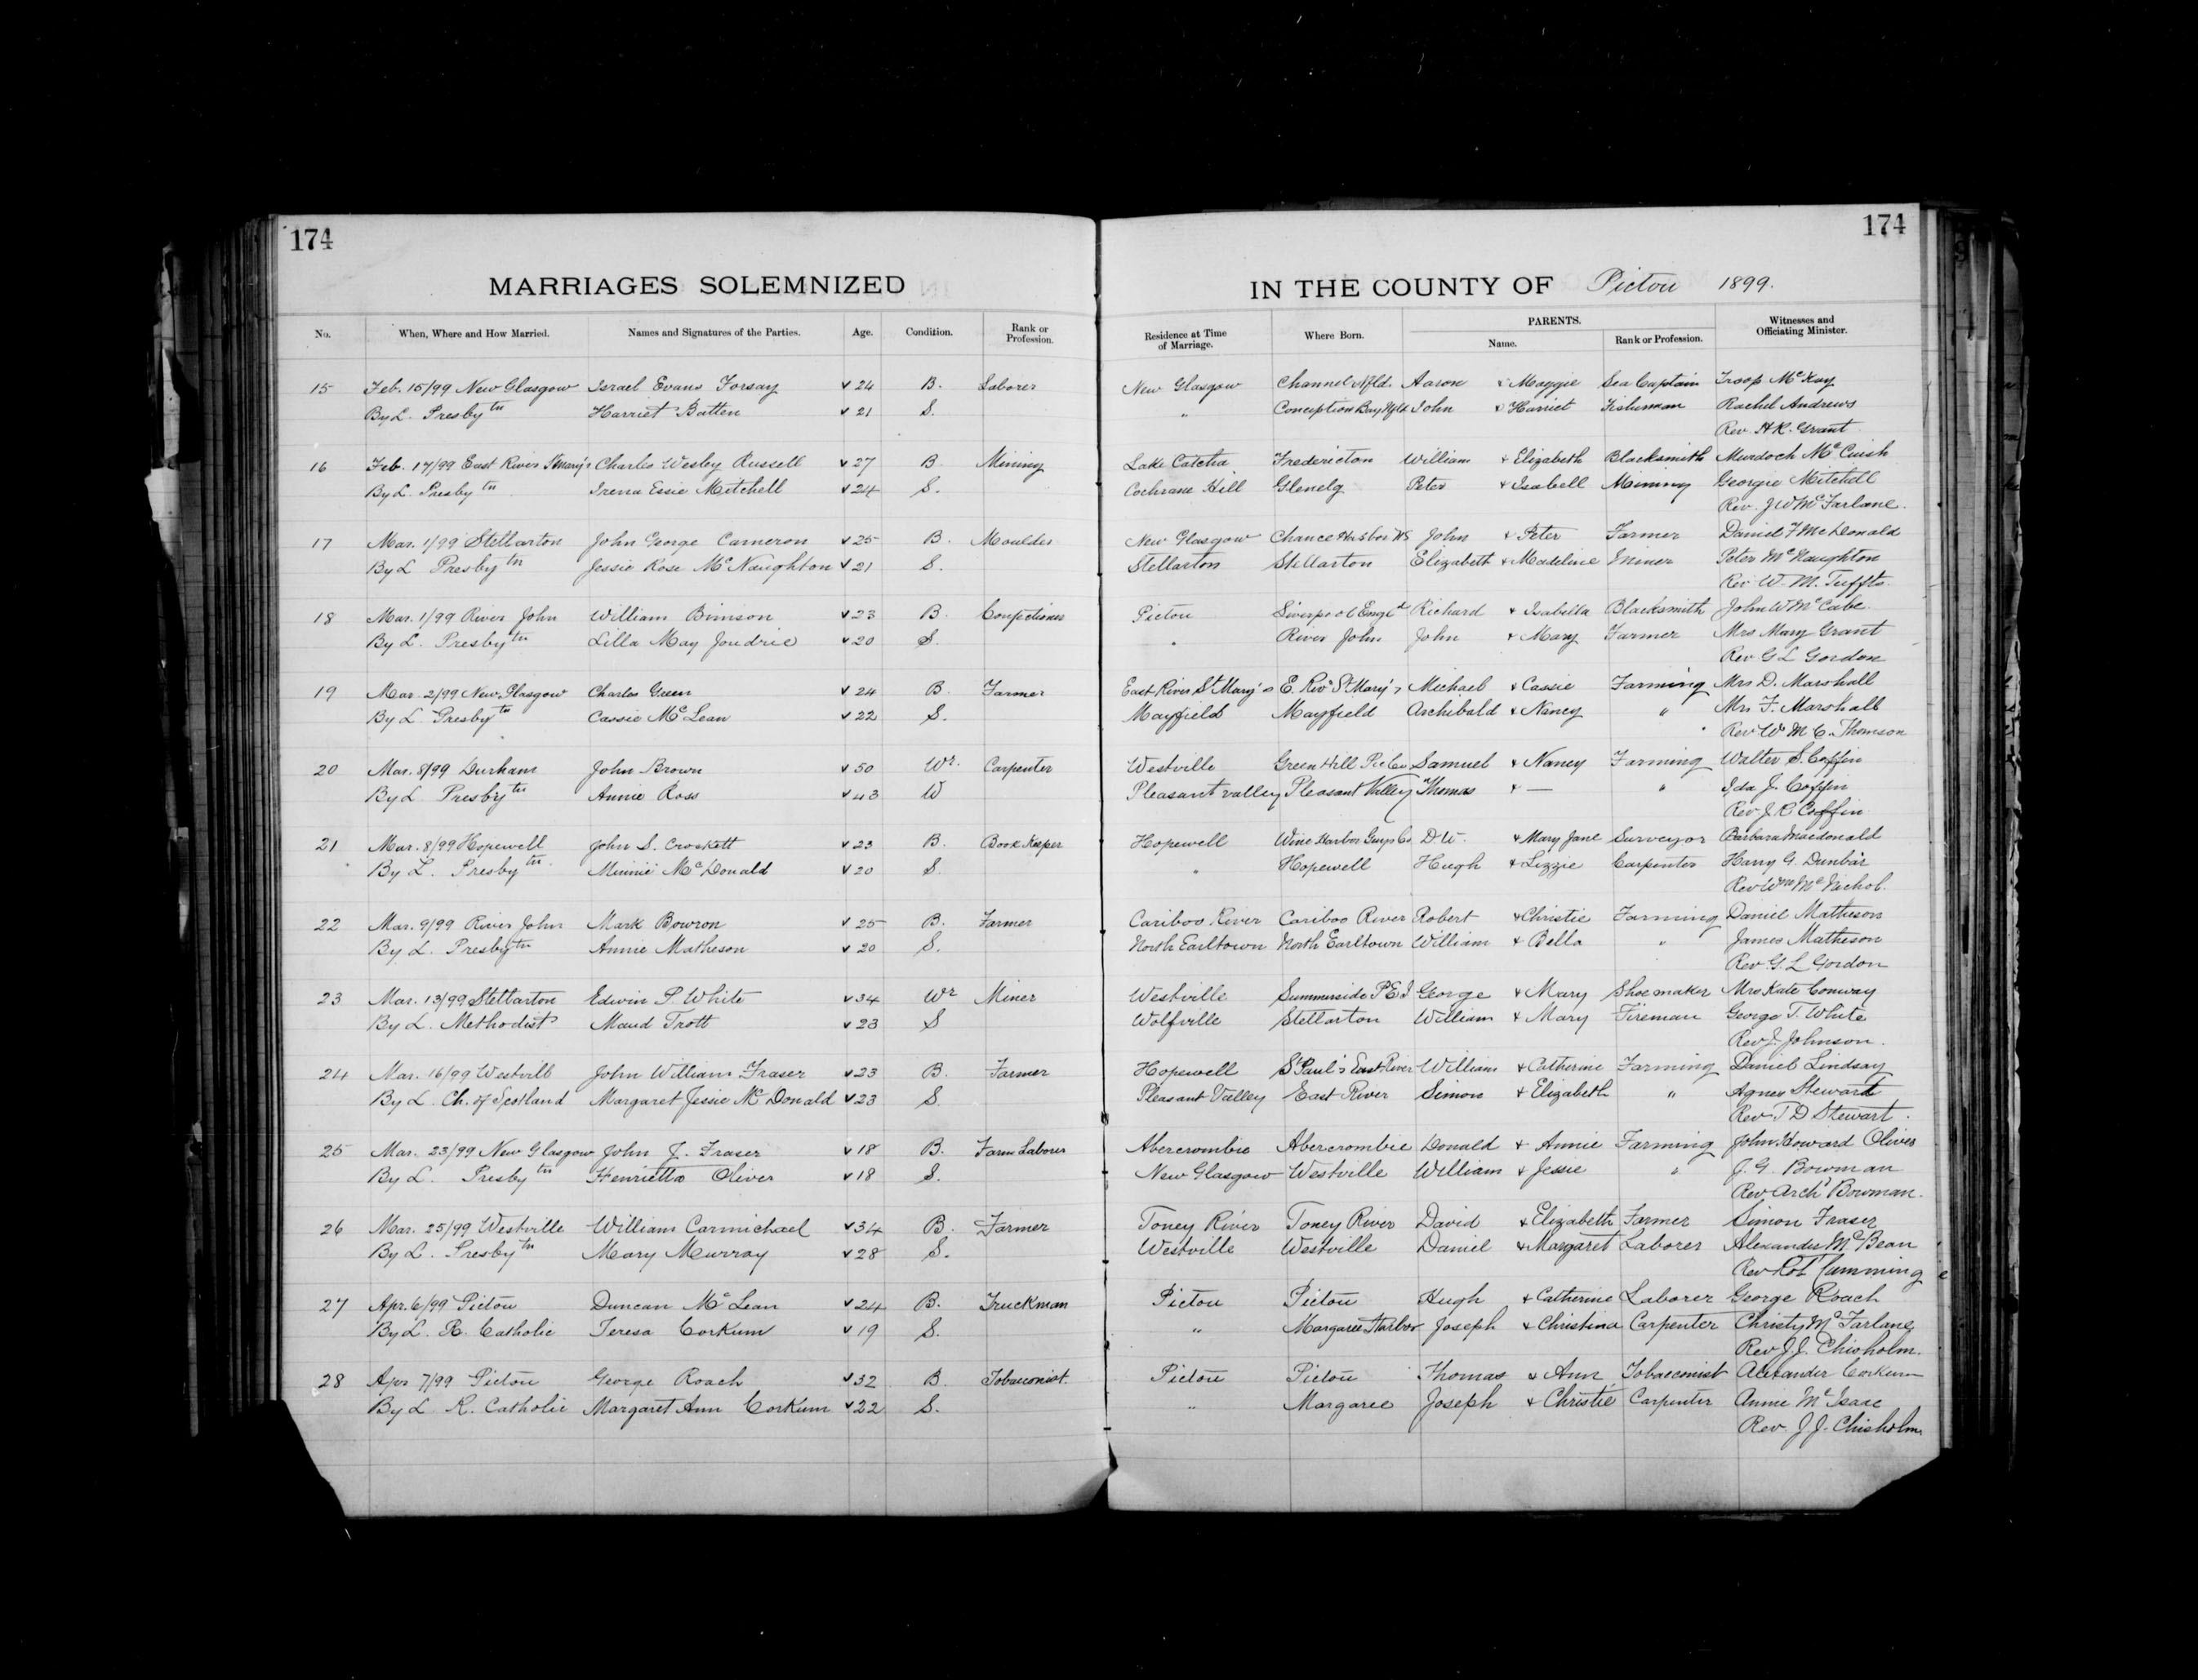 174
174
MARRIAGES SOLEMNIZED IN THE COUNTY OF Pictou 1899.
No. When, Where and How Married. Names and Signatures of the Parties. Age. Condition. Rank or Profession. Residence at Time of Marriage. Where Born. PARENTS. Name. Rank or Profession. Witnesses and Officiating Minister.
15 Feb. 15/99 New Glasgow Israel Evans Forsay 24 B. Laborer New Glasgow Channel Nfld. Aaron & Maggie Sea Captain Troop McKay
By L. Presbytn Harriet Batten 21 S. " Conception Bay Nfld John & Harriet Fisherman Rachel Andrews
Rev. H.R. Grant
16 Feb. 17/99 East River St Mary's Charles Wesley Russell 27 B. Mining Lake Catcha Fredericton William & Elizabeth Blacksmith Murdoch McCuish
By L. Presbytn Irena Essie Mitchell 24 S. Cochrane Hill Glenelg Peter & Isabell Mining Georgie Mitchell
Rev. J W McFarlane.
17 Mar. 1/99 Stellarton John George Cameron 25 B. Moulder New Glasgow Chance Harbor NS John & Peter Farmer Daniel F McDonald
By L Presbytn Jessie Rose McNaughton 21 S. Stellarton Stellarton Elizabeth & Madeline Miner Peter McNaughton
Rev W. M. Tuffts.
18 Mar. 1/99 River John William Bimson 23 B. Confectioner Pictou Liverpool Engld Richard & Isabella Blacksmith John W McCabe.
By L. Presbytn Lilla May Joudrie 20 S. " River John John & Mary Farmer Mrs Mary Grant
Rev G L Gordon
19 Mar. 2/99 New Glasgow Charles Green 24 B. Farmer East River St Mary's E. Rivr St Mary's Michael & Cassie Farming Mrs D. Marshall
By L. Presbytn Cassie McLean 22 S. Mayfield Mayfield Archibald & Nancy " Mrs F. Marshall
Rev Wm M C. Thomson
20 Mar. 8/99 Durham John Brown 50 Wr. Carpenter Westville Green Hill Pic Co Samuel & Nancy Farming Walter S. Coffin
By L. Presbytn Annie Ross 43 W Pleasant valley Pleasant Valley Thomas & — " Ida J. Coffin
Rev J. R Coffin
21 Mar. 8/99 Hopewell John S. Crockett 23 B. Book Keeper Hopewell Wine Harbor Guys Co D. W. & Mary Jane Surveyor Barbara Macdonald
By L. Presbytn. Minnie McDonald 20 S. " Hopewell Hugh & Lizzie Carpenter Harry G. Dunbar
Rev Wm McNichol.
22 Mar. 9/99 River John Mark Bowron 25 B. Farmer Cariboo River Cariboo River Robert & Christie Farming Daniel Matheson
By L. Presbytn Annie Matheson 20 S. North Earltown North Earltown William & Bella " James Matheson
Rev. G. L Gordon
23 Mar. 13/99 Stellarton Edwin P. White 34 Wr Miner Westville Summerside P E I George & Mary Shoemaker Mrs Kate Conway
By L. Methodist Maud Trott 23 S Wolfville Stellarton William & Mary Fireman George T. White
Rev J. Johnson.
24 Mar. 16/99 Westvill John William Fraser 23 B. Farmer Hopewell St Paul's East River William & Catherine Farming Daniel Lindsay
By L. Ch. of Scotland Margaret Jessie McDonald 23 S. Pleasant Valley East River Simon & Elizabeth " Agnes Stewart
Rev T D Stewart.
25 Mar. 23/99 New Glasgow John J. Fraser 18 B. Farm Laborer Abercrombie Abercrombie Donald & Annie Farming John Howard Oliver
By L. Presbytn Henrietta Oliver 18 S. New Glasgow Westville William & Jessie " J. G. Bowman
Rev Archd Bowman.
26 Mar. 25/99 Westville William Carmichael 34 B. Farmer Toney River Toney River David & Elizabeth Farmer Simon Fraser
By L. Presbytn Mary Murray 28 S. Westville Westville Daniel & Margaret Laborer Alexander McBean
Rev Rob Cumming
27 Apr. 6/99 Pictou Duncan McLean 24 B. Truckman Pictou Pictou Hugh & Catherine Laborer George Roach
By L. R. Catholic Teresa Corkum 19 S. " Margaree Harbor Joseph & Christina Carpenter Christy McFarlane
Rev J J. Chisholm.
28 Apr 7/99 Pictou George Roach 32 B. Tobacconist. Pictou Pictou Thomas & Ann Tobacconist Alexander Corkum
By L R. Catholic Margaret Ann Corkum 22 S. " Margaree Joseph & Christie Carpenter Annie McIsaac
Rev. J. J. Chisholm